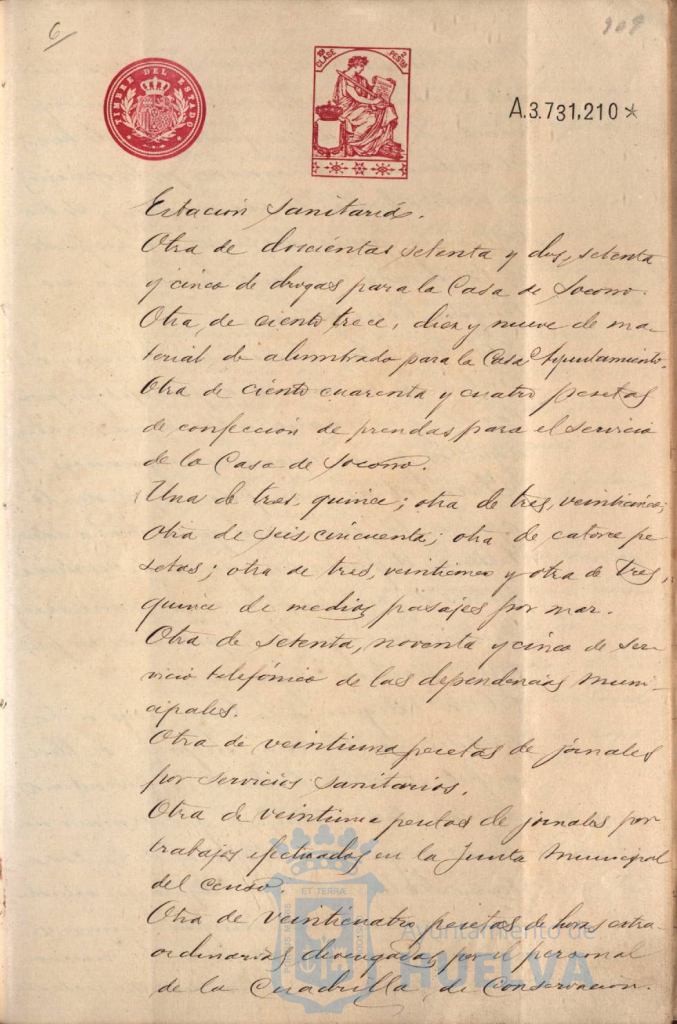 6
909
TIMBRE DEL ESTADO
10ª CLASE
2 PESETAS
A.3.731,210*
Estación Sanitaria.
Otra de doscientas setenta y dos, setenta
y cinco de drogas para la Casa de Socorro.
Otra de ciento trece, diez y nueve de ma-
terial de alumbrado para la Casa Ayuntamiento.
Otra de ciento cuarenta y cuatro pesetas
de confección de prendas para el servicio
de la Casa de Socorro.
Una de tres, quince; otra de tres, veinticinco;
otra de seis, cincuenta; otra de catorce pe-
setas; otra de tres, veinticinco y otra de tres,
quince de medios pasajes por mar.
Otra de setenta, noventa y cinco de ser-
vicio telefónico de las dependencias muni-
cipales.
Otra de veintiuna pesetas de jornales
por servicios sanitarios.
Otra de veintiuna pesetas de jornales por
trabajos efectuados en la Junta Municipal
del censo.
Otra de veinticuatro pesetas de horas extra-
ordinarias devengadas por el personal
de la Cuadrilla de Conservación.
ET TERRA
Ayuntamiento de
HUELVA